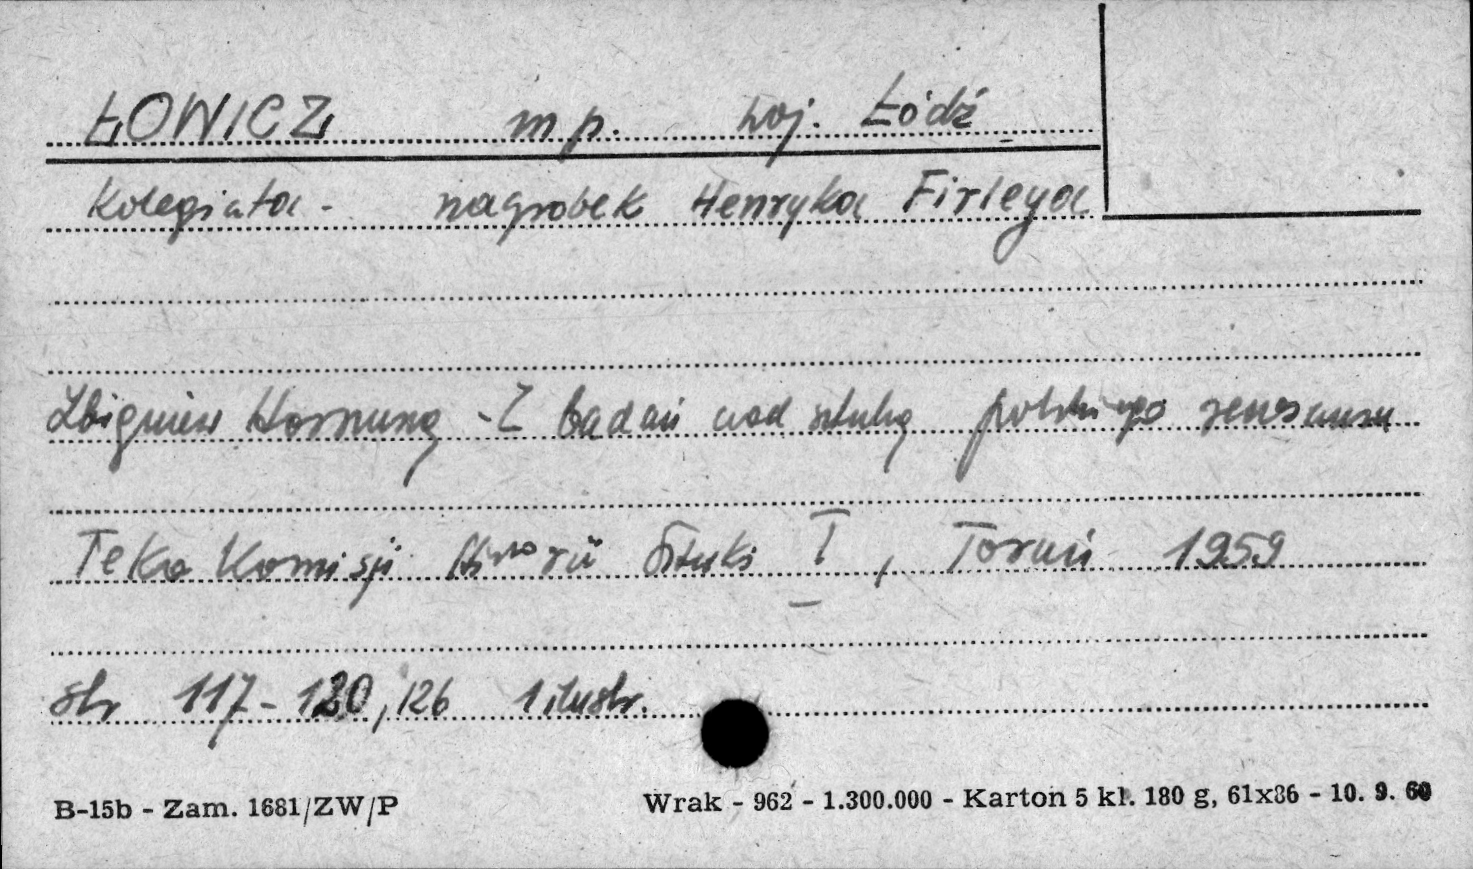 ŁOWICZ mp. woj. Łódź
Kolegiata - nagrobek Henryka Firleya
Zbigniew Hornung - Z badań nad sztuką polskiego renesansu
Teka Komisji Historii Sztuki I, Toruń 1959
str 117-120, 126 1 ilustr.
B-15b - Zam. 1681/ZW/P Wrak - 962 - 1.300.000 - Karton 5 kl. 180 g, 61x86 - 10. 9. 60